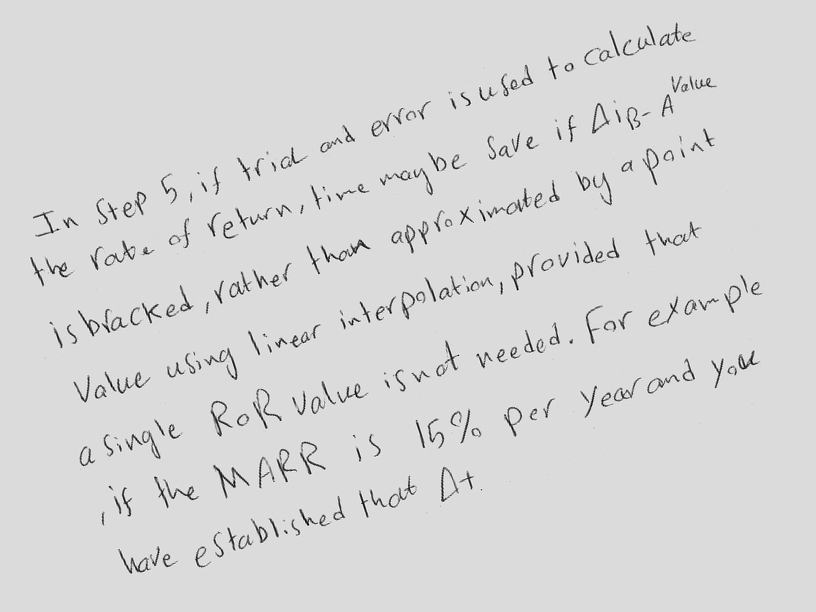 In Step 5, if trial and error is used to calculate
the rate of return, time maybe save if ΔiB-A Value
is bracked, rather than approximated by a point
Value using linear interpolation, provided that
a single RoR value is not needed. For example
, if the MARR is 15% per year and you
have established that Δt.